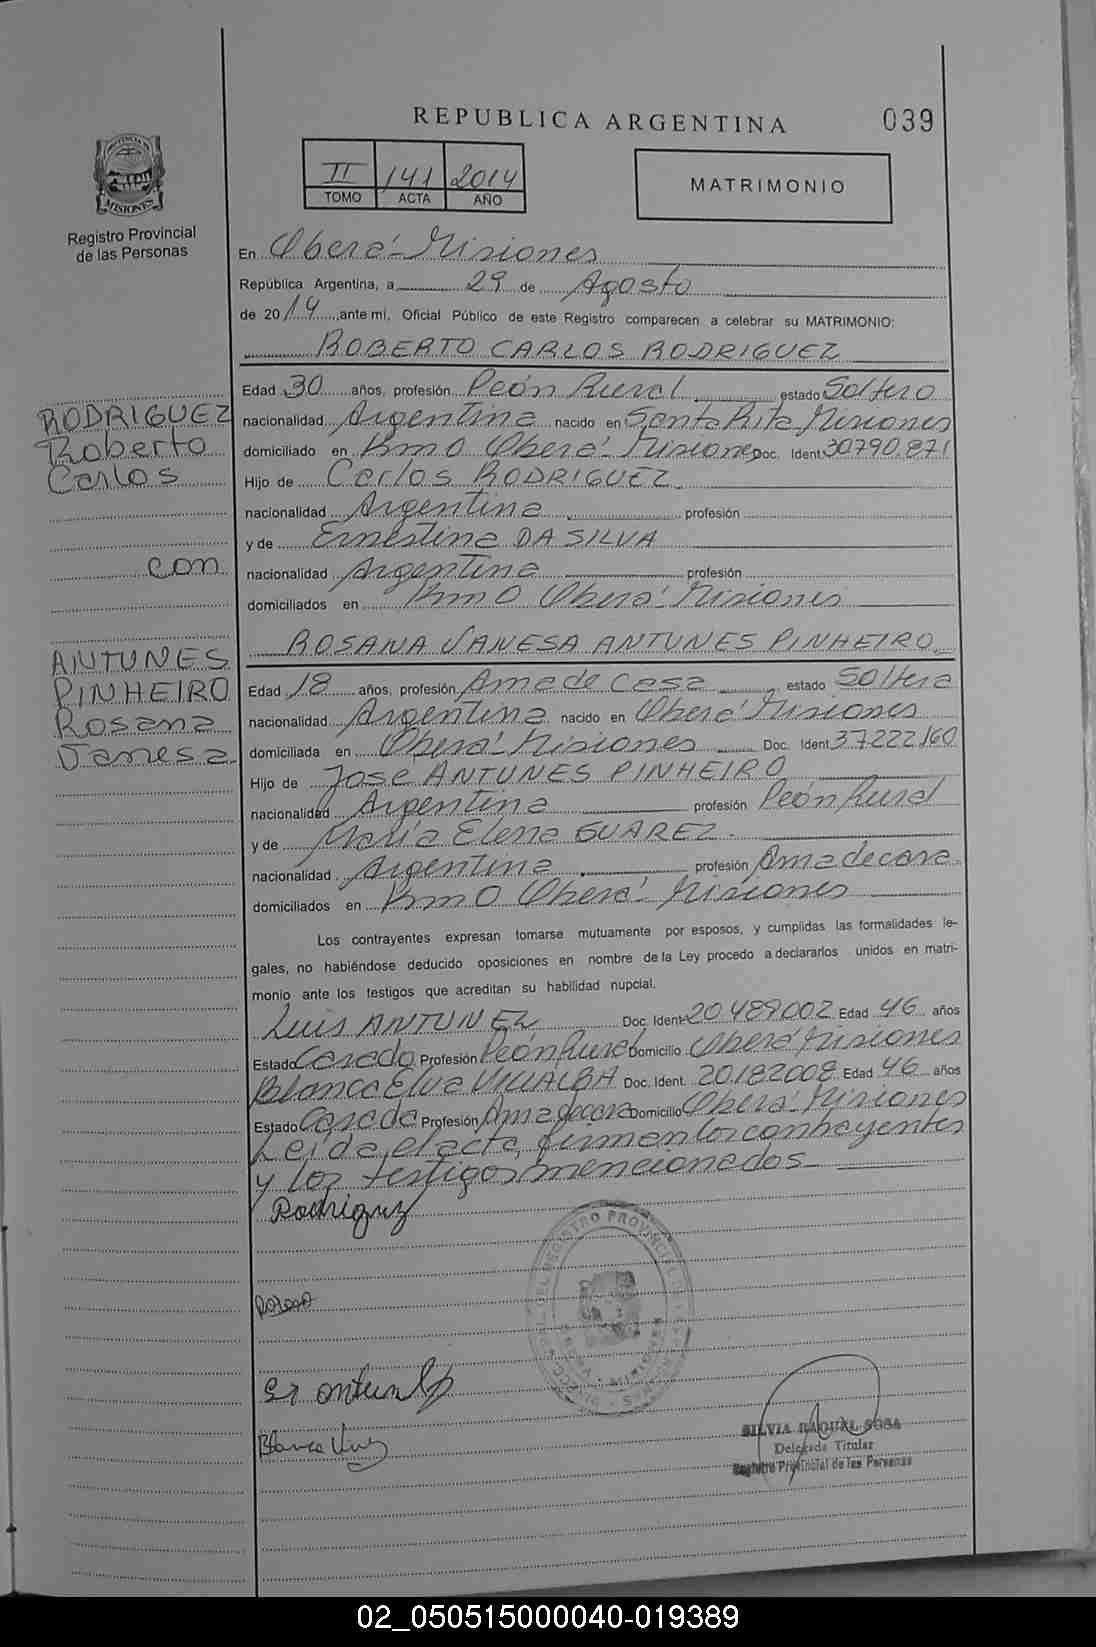 REPUBLICA ARGENTINA
039
PROVINCIA DE
MISIONES
Registro Provincial
de las Personas
II 141 2014
TOMO ACTA AÑO
MATRIMONIO
En Oberá-Misiones
República Argentina, a 29 de Agosto
de 2014, ante mí, Oficial Público de este Registro comparecen a celebrar su MATRIMONIO:
ROBERTO CARLOS RODRIGUEZ
Edad 30 años, profesión Peón Rural estado Soltero
nacionalidad Argentina nacido en Santa Rita Misiones
domiciliado en Km 0 Oberá-Misiones Doc. Ident. 30790.871
Hijo de Carlos RODRIGUEZ
nacionalidad Argentina profesión
y de Ernestina DA SILVA
nacionalidad Argentina profesión
domiciliados en Km 0 Oberá-Misiones
RODRIGUEZ
Roberto
Carlos
con
ANTUNES
PINHEIRO
Rosana
Vanesa
ROSANA VANESA ANTUNES PINHEIRO
Edad 18 años, profesión Ama de Casa estado Soltera
nacionalidad Argentina nacido en Oberá-Misiones
domiciliada en Oberá-Misiones Doc. Ident. 37222160
Hijo de Jose ANTUNES PINHEIRO
nacionalidad Argentina profesión Peón Rural
y de María Elena SUAREZ.
nacionalidad Argentina profesión Ama de casa
domiciliados en Km 0 Oberá-Misiones
Los contrayentes expresan tomarse mutuamente por esposos, y cumplidas las formalidades le-
gales, no habiéndose deducido oposiciones en nombre de la Ley procedo a declararlos unidos en matri-
monio ante los testigos que acreditan su habilidad nupcial.
Luis ANTUNEZ Doc. Ident. 20.489002 Edad 46 años
Estado Casado Profesión Peón Rural Domicilio Oberá Misiones
Blanca Elva VILLALBA Doc. Ident. 20182008 Edad 46 años
Estado Casada Profesión Ama de casa Domicilio Oberá-Misiones
Leída el acta, firman los contrayentes
y los testigos mencionados
Rodriguz
SILVIA RAQUEL SOSA
Delegada Titular
Registro Provincial de las Personas
02_050515000040-019389